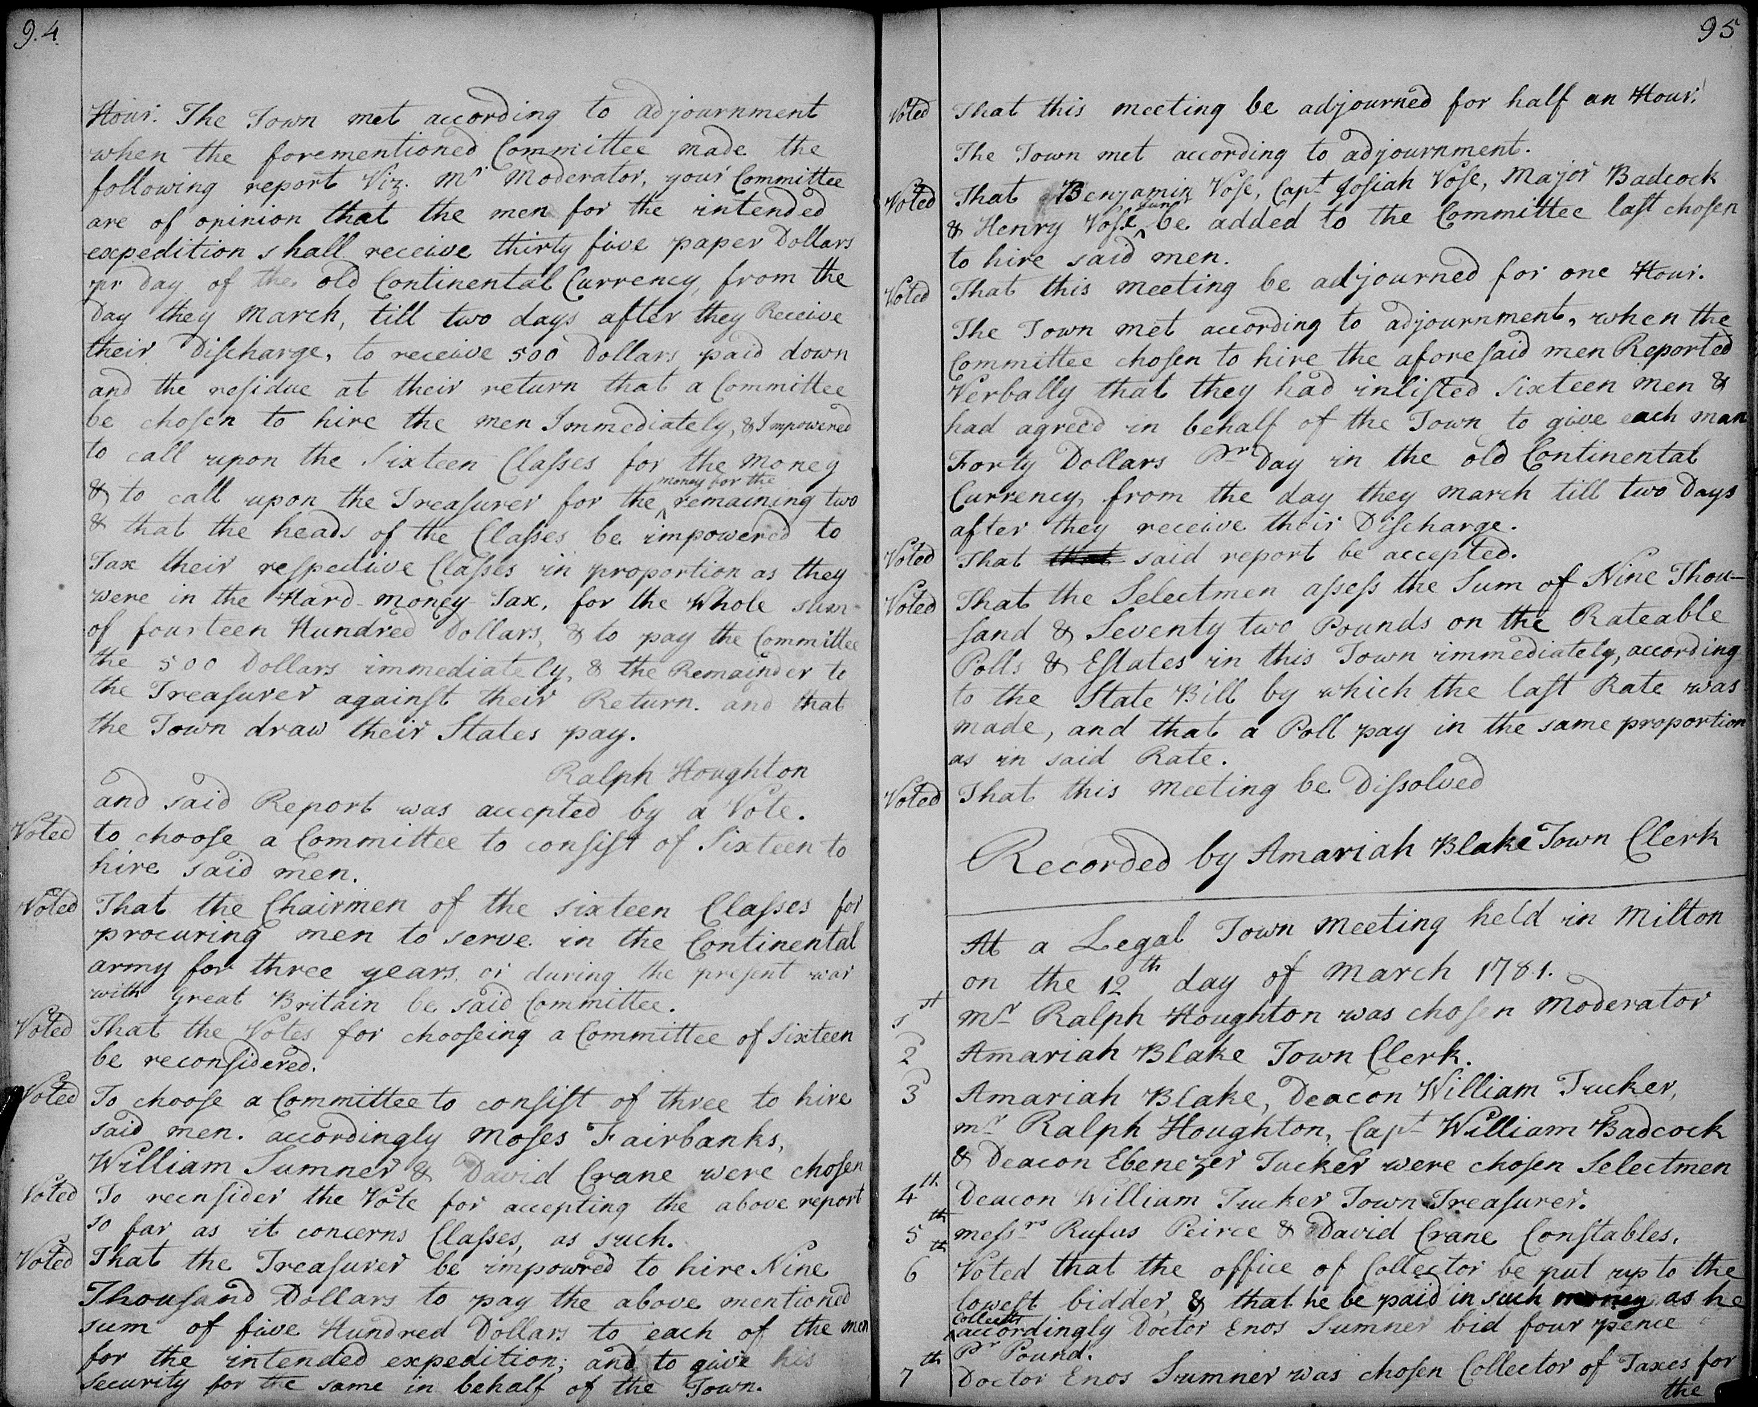 94
Hour. The Town met according to adjournment
when the forementioned Committee made the
following report Viz. Mr Moderator, your Committee
are of opinion that the men for the intended
expedition shall receive thirty five paper Dollars
pr day of the old Continental Currency, from the
Day they march, till two days after they Receive
their Discharge, to receive 500 Dollars paid down
and the residue at their return that a Committee
be chosen to hire the men Immediately, & Impowered
to call upon the Sixteen Classes for the money
& to call upon the Treasurer for the money for the remaining two
& that the heads of the Classes be impowered to
Tax their respective Classes in proportion as they
were in the Hard money Tax, for the whole sum
of fourteen Hundred Dollars, & to pay the Committee
the 500 Dollars immediately, & the Remainder to
the Treasurer against their Return. and that
the Town draw their States pay.
Ralph Houghton
and said Report was accepted by a Vote.
Voted to choose a Committee to consist of Sixteen to
hire said men.
Voted That the Chairmen of the sixteen Classes for
procuring men to serve in the Continental
army for three years, or during the present war
with great Britain be said Committee.
Voted That the Votes for chooseing a Committee of sixteen
be reconsidered.
Voted To choose a Committee to consist of three to hire
said men. accordingly Moses Fairbanks,
William Sumner & David Crane were chosen
Voted To reconsider the Vote for accepting the above report
so far as it concerns Classes, as such.
Voted That the Treasurer be impowred to hire Nine
Thousand Dollars to pay the above mentioned
sum of five Hundred Dollars to each of the men
for the intended expedition; and to give his
security for the same in behalf of the Town.
95
Voted That this meeting be adjourned for half an Hour.
The Town met according to adjournment.
Voted That Benjamin Vose, Capt Josiah Vose, Major Badcock
& Henry Vose Junr be added to the Committee last chosen
to hire said men.
Voted That this meeting be adjourned for one Hour.
The Town met according to adjournment, when the
Committee chosen to hire the aforesaid men Reported
Verbally that they had inlisted sixteen men &
had agreed in behalf of the Town to give each man
Forty Dollars Pr Day in the old Continental
Currency, from the day they march till two Days
after they receive their Discharge.
Voted That that said report be accepted.
Voted That the Selectmen assess the Sum of Nine Thou-
sand & Seventy two Pounds on the Rateable
Polls & Estates in this Town immediately, according
to the State Bill by which the last Rate was
made, and that a Poll pay in the same proportion
as in said Rate.
Voted That this Meeting be Dissolved
Recorded by Amariah Blake Town Clerk
At a Legal Town Meeting held in Milton
on the 12th day of March 1781.
1st Mr Ralph Houghton was chosen Moderator
2 Amariah Blake Town Clerk.
3 Amariah Blake, Deacon William Tucker,
Mr Ralph Houghton, Capt William Badcock
& Deacon Ebenezer Tucker were chosen Selectmen
4th Deacon William Tucker Town Treasurer.
5th Messrs Rufus Peirce & David Crane Constables.
6th Voted that the office of Collector be put up to the
lowest bidder, & that he be paid in such money as he
Collects accordingly Doctor Enos Sumner bid four pence
Pr Pound.
7th Doctor Enos Sumner was chosen Collector of Taxes for
the